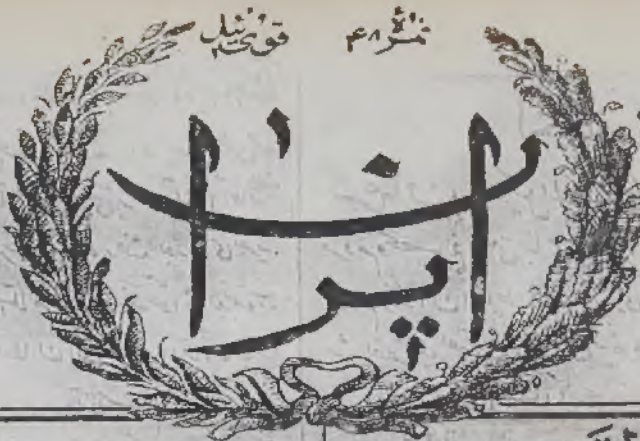 نمره ۴۸ قوی ئیل
ایران